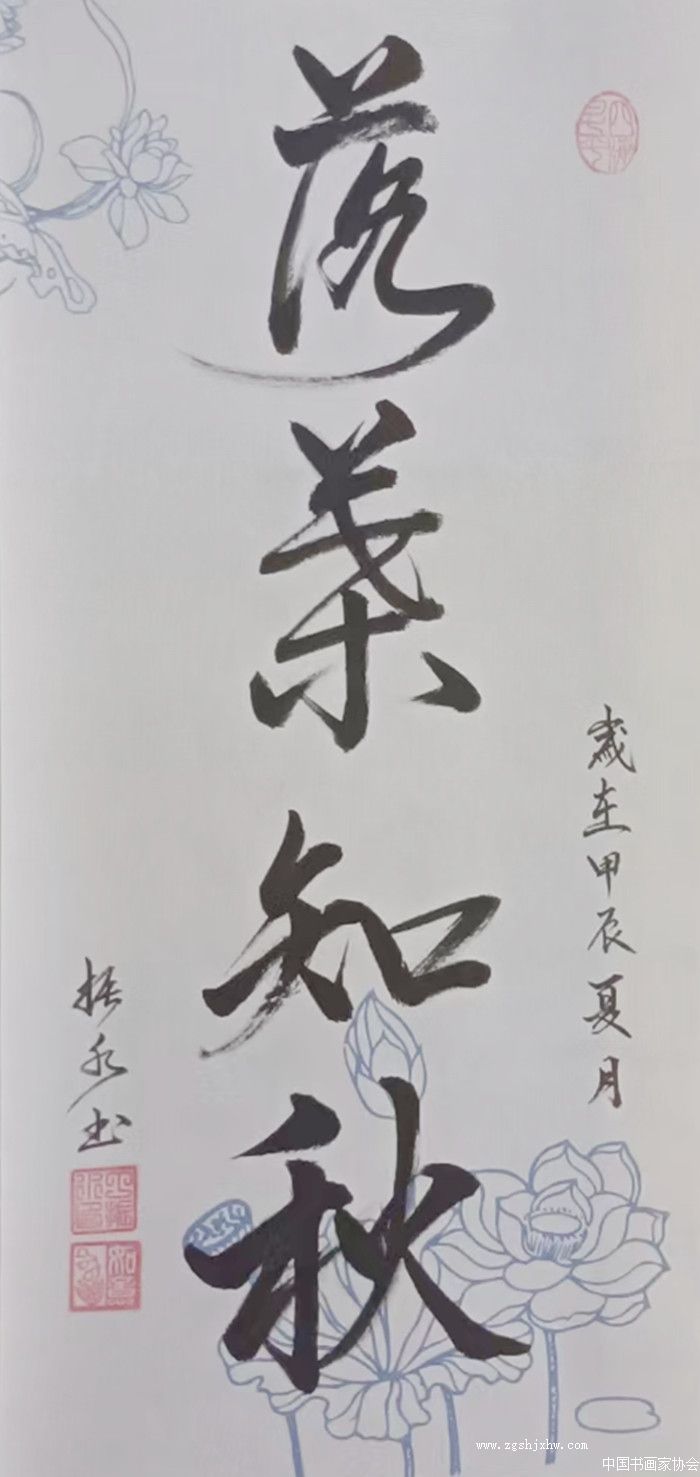 落葉知秋
歲在甲辰夏月
振永书
www.zgshjxhw.com
中国书画家协会